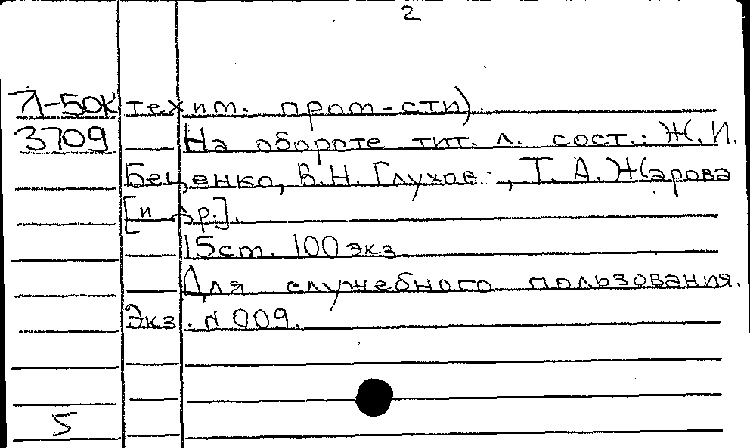 2
Л-50К техим. пром-сти).
3709 На обороте тит. л. сост.: Ж. И.
Беценко, В. Н. Глухов, Т. А. Жарова
[и др.].
15 ст. 100 экз
Для служебного пользования.
Экз. N 009.
5